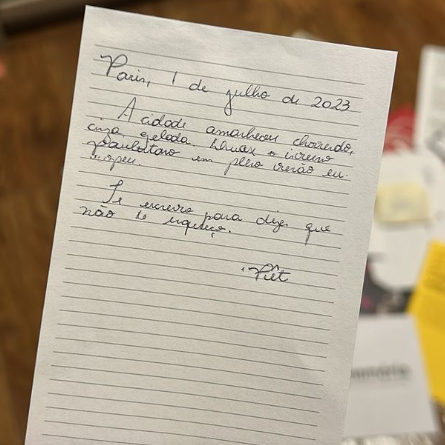 Paris, 1 de julho de 2023
A cidade amanheceu chovendo,
cinza gelada. o inverno
paulistano em pleno verão eu-
ropeu.
Te escrevo para dizer que
não te esqueço.